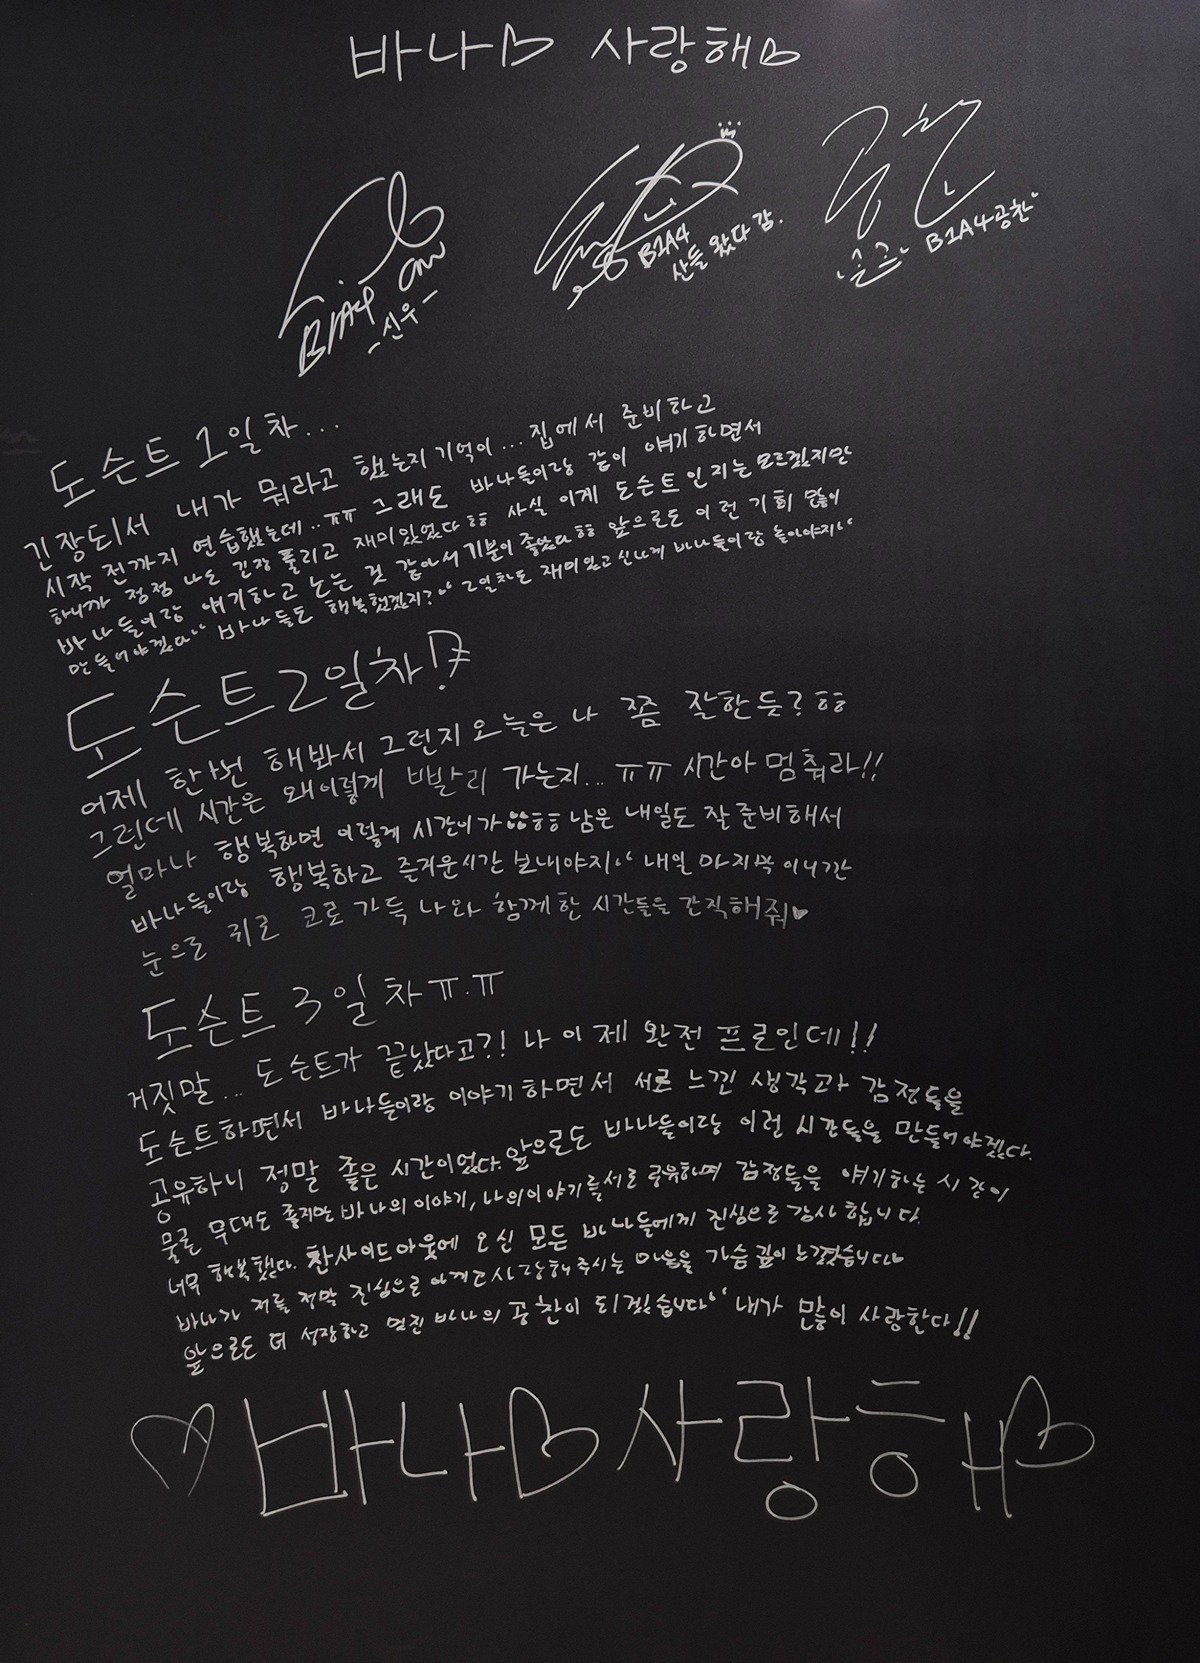 바나♡ 사랑해♡
B1A4
-신우-
B1A4
산들 왔다 감.
B1A4 공찬
도슨트 1일차...
긴장되서 내가 뭐라고 했는지 기억이... 집에서 준비하고
시작 전까지 연습했는데..ㅠㅠ 그래도 바나들이랑 같이 얘기하면서
하니까 점점 나도 긴장 풀리고 재미있었다ㅎㅎ 사실 이게 도슨트인지는 모르겠지만
바나들이랑 얘기하고 노는 것 같아서 기분이 좋았다ㅎㅎ 앞으로도 이런 기회 많이
만들어야겠다^^ 바나들도 행복했겠지?^^ 2일차도 재미있고 신나게 바나들이랑 놀아야지^^
도슨트 2일차!
어제 한번 해봐서 그런지 오늘은 나 쫌 잘한듯?ㅎㅎ
그런데 시간은 왜이렇게 빨리 가는지... ㅠㅠ 시간아 멈춰라!!
얼마나 행복하면 이렇게 시간이가 ㅎㅎ 남은 내일도 잘 준비해서
바나들이랑 행복하고 즐거운시간 보내야지^^ 내일 마지막이니깐
눈으로 귀로 코로 가득 나와 함께한 시간들을 간직해줘♥
도슨트 3일차ㅠ.ㅠ
거짓말... 도슨트가 끝났다고?! 나 이제 완전 프로인데!!
도슨트하면서 바나들이랑 이야기하면서 서로 느낀 생각과 감정들을
공유하니 정말 좋은 시간이었다. 앞으로도 바나들이랑 이런 시간들을 만들어야겠다.
물론 무대도 좋지만 바나의 이야기, 나의이야기를 서로 공유하며 감정들을 얘기하는 시간이
너무 행복했다. 찬사이드아웃에 오신 모든 바나들에게 진심으로 감사합니다.
바나가 저를 정말 진심으로 아껴고 사랑해주시는 마음을 가슴 깊이 느꼈습니다♥
앞으로도 더 성장하고 멋진 바나의 공찬이 되겠습니다^^ 내가 많이 사랑한다!!
♡바나♡사랑해♡